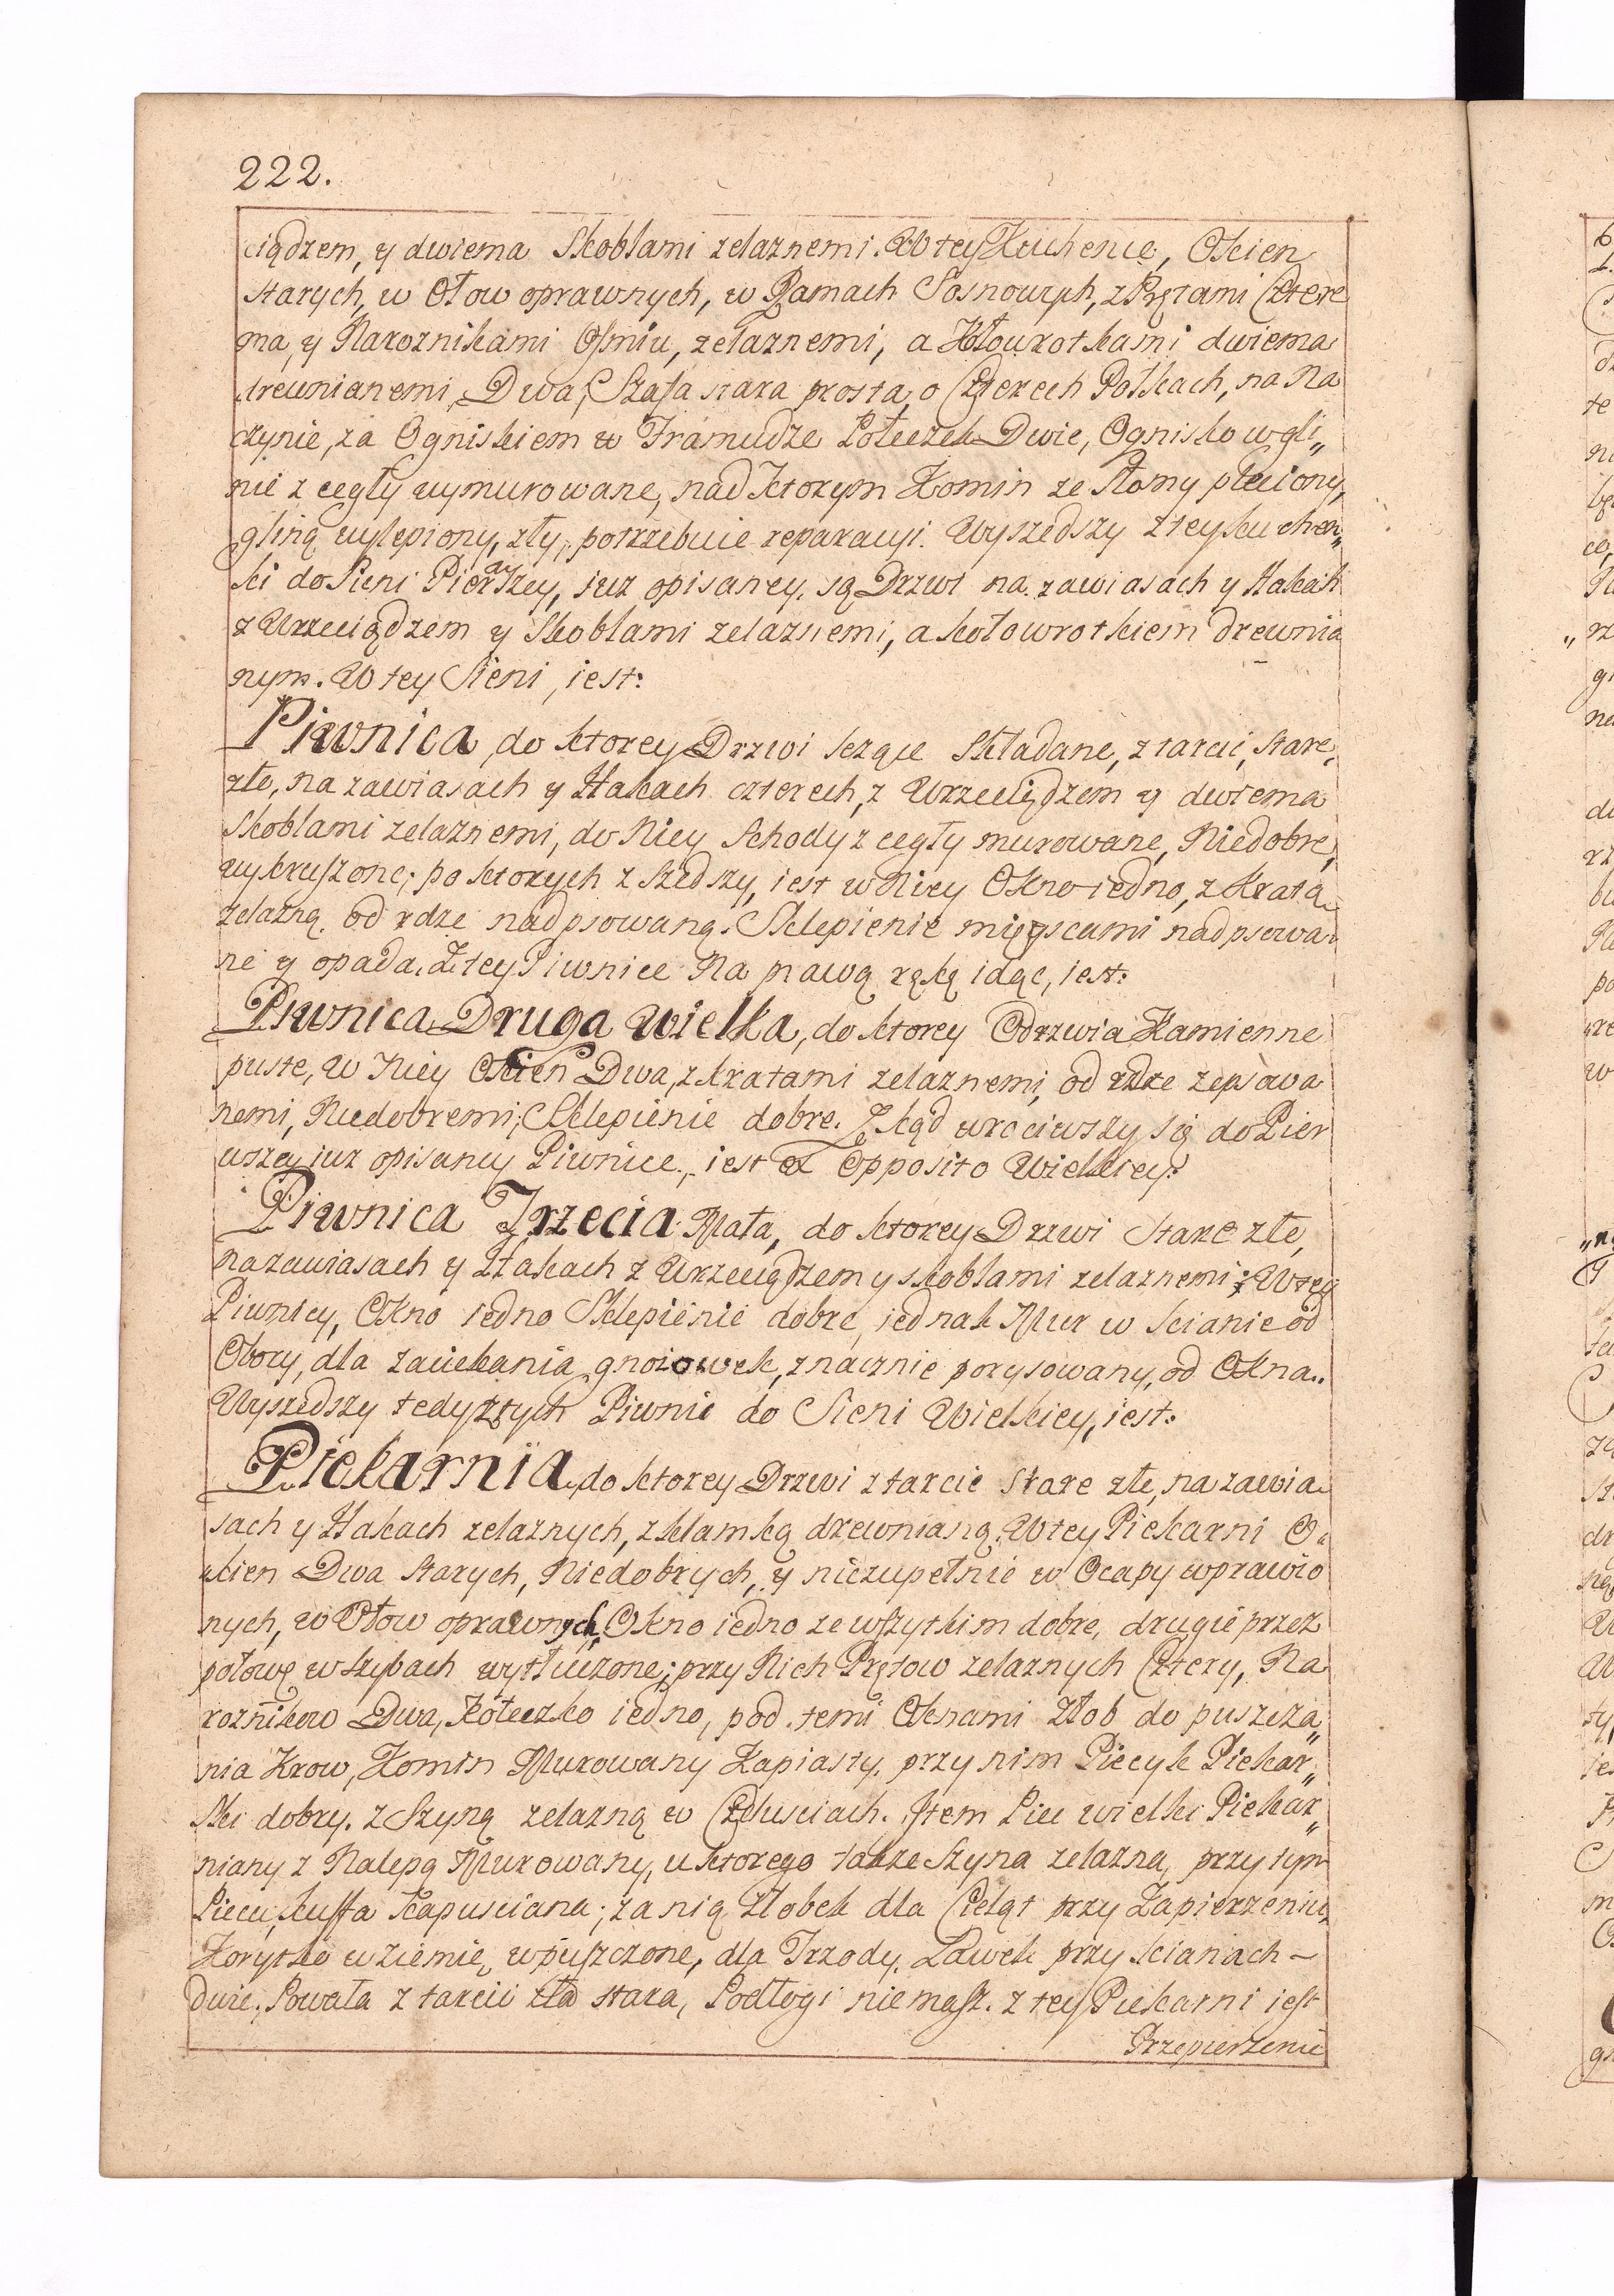 222.
ciądzem, y dwiema Skoblami zelaznemi. W tey Kuchence, Okien
starych, w Ołow oprawnych, w Ramach Sosnowych, z Prętami Cztere
ma, y Naroznikami Osmiu, zelaznemi, a Kłowrotkami dwiema
drewnianemi, Dwa, Szafa stara prosta, o Czterech Połkach, na Na
czynie, za Ogniskiem w Framudze Połeczek Dwie, Ognisko w gli„
nie z cegły wymurowane, nad ktorym Komin ze słomy pleciony,
gliną wylepiony, zły, potrzebuie reparacyi. Wyszedszy z tey kuchen„
ki do Sieni Pierwszey, iuz opisaney, są Drzwi na zawiasach y Hakach
z Wrzeciądzem y Skoblami zelaznemi, a kołowrotkiem drewnia
nym. W tey Sieni, iest:
Piwnica, do ktorey Drzwi lezące składane, z tarcic, stare,
złe, na zawiasach y Hakach czterech, z Wrzeciądzem y dwiema
Skoblami zelaznemi, do Niey Schody z cegły murowane, Niedobre,
wykruszone; po ktorych zszedszy, iest w Niey Okno iedno, z Kratą
zelazną od rdze nadpsowaną. Sklepienie mieyscami nadpsowa„
ne y opada. Z tey Piwnice Na prawą rękę idąc, iest:
Piwnica Druga Wielka, do ktorey Odrzwia Kamienne
puste, w Niey Okien Dwa, z kratami zelaznemi, od rdze zepsowa
nemi, Niedobremi; Sklepienie dobre. Z kąd wrociwszy się do Pier
wszey iuz opisaney Piwnice, iest ex Opposito Wielkiey:
Piwnica Trzecia Mała, do ktorey Drzwi stare złe,
na zawiasach y Hakach z Wrzeciądzem y skoblami zelaznemi; W tey
Piwnicy, Okno iedno Sklepienie dobre, iednak Mur w scianie od
Obory, dla zaciekania gnoiowek, znacznie porysowany, od Okna..
Wyszedszy tedy z tych Piwnic do Sieni Wielkiey, iest:
Piekarnia, do ktorey Drzwi z tarcic stare złe, na zawia„
sach y Hakach zelaznych, z klamką drewnianą. W tey Piekarni O„
kien Dwa starych, Niedobrych, y niezupełnie w Ocapy wprawio
nych, w Ołow oprawnych, Okno iedno ze wszytkim dobre, drugie przez
połowę w szybach wytłuczone; przy Nich Prętow zelaznych Cztery, Na
roznikow Dwa, Kołeczko iedno, pod temi Oknami Złob do puszcza„
nia Krow, Komin Murowany Kapiasty, przy nim Piecyk Piekar„
ski dobry, z Szyną zelazną w Czeluściach. Item Piec wielki Piekar„
niany z Nalepą Murowany, u ktorego takze Szyna zelazna, przy tym
Piecu, kuffa kapusciana; za nią Złobek dla Cieląt przy Zapierzeniu,
Korytko w ziemię wpuszczone, dla Trzody. Ławek przy scianach –
dwie. Powała z tarcic zła stara, Podłogi niemasz. z tey Piekarni iest
Przepierzenie